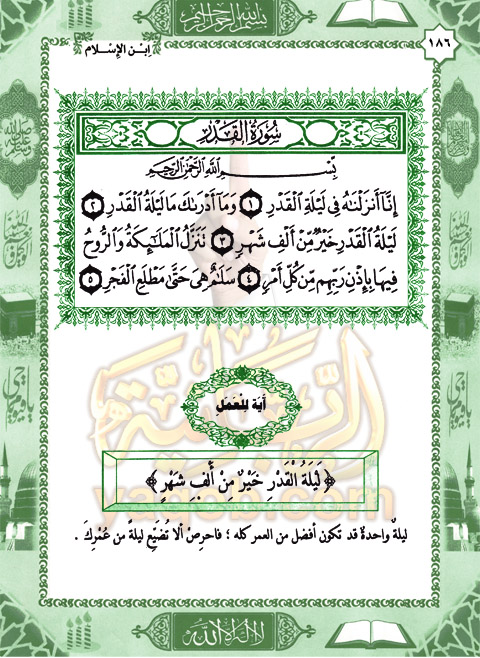 بسم الله الرحمن الرحيم
١٨٦
ابن الإسلام
سُورَةُ الْقَدْرِ
بِسْمِ اللَّهِ الرَّحْمَٰنِ الرَّحِيمِ
إِنَّا أَنزَلْنَٰهُ فِى لَيْلَةِ الْقَدْرِ ١ وَمَا أَدْرَىٰكَ مَا لَيْلَةُ الْقَدْرِ ٢
لَيْلَةُ الْقَدْرِ خَيْرٌ مِّنْ أَلْفِ شَهْرٍ ٣ تَنَزَّلُ الْمَلَٰٓئِكَةُ وَالرُّوحُ
فِيهَا بِإِذْنِ رَبِّهِم مِّن كُلِّ أَمْرٍ ٤ سَلَٰمٌ هِىَ حَتَّىٰ مَطْلَعِ الْفَجْرِ ٥
آية للعمل
﴿لَيْلَةُ الْقَدْرِ خَيْرٌ مِنْ أَلْفِ شَهْرٍ﴾
ليلةٌ واحدةٌ قد تكون أفضل من العمر كله ؛ فاحرِصْ ألا تُضَيِّع ليلةً من عُمْرِكَ .
لا إله إلا الله